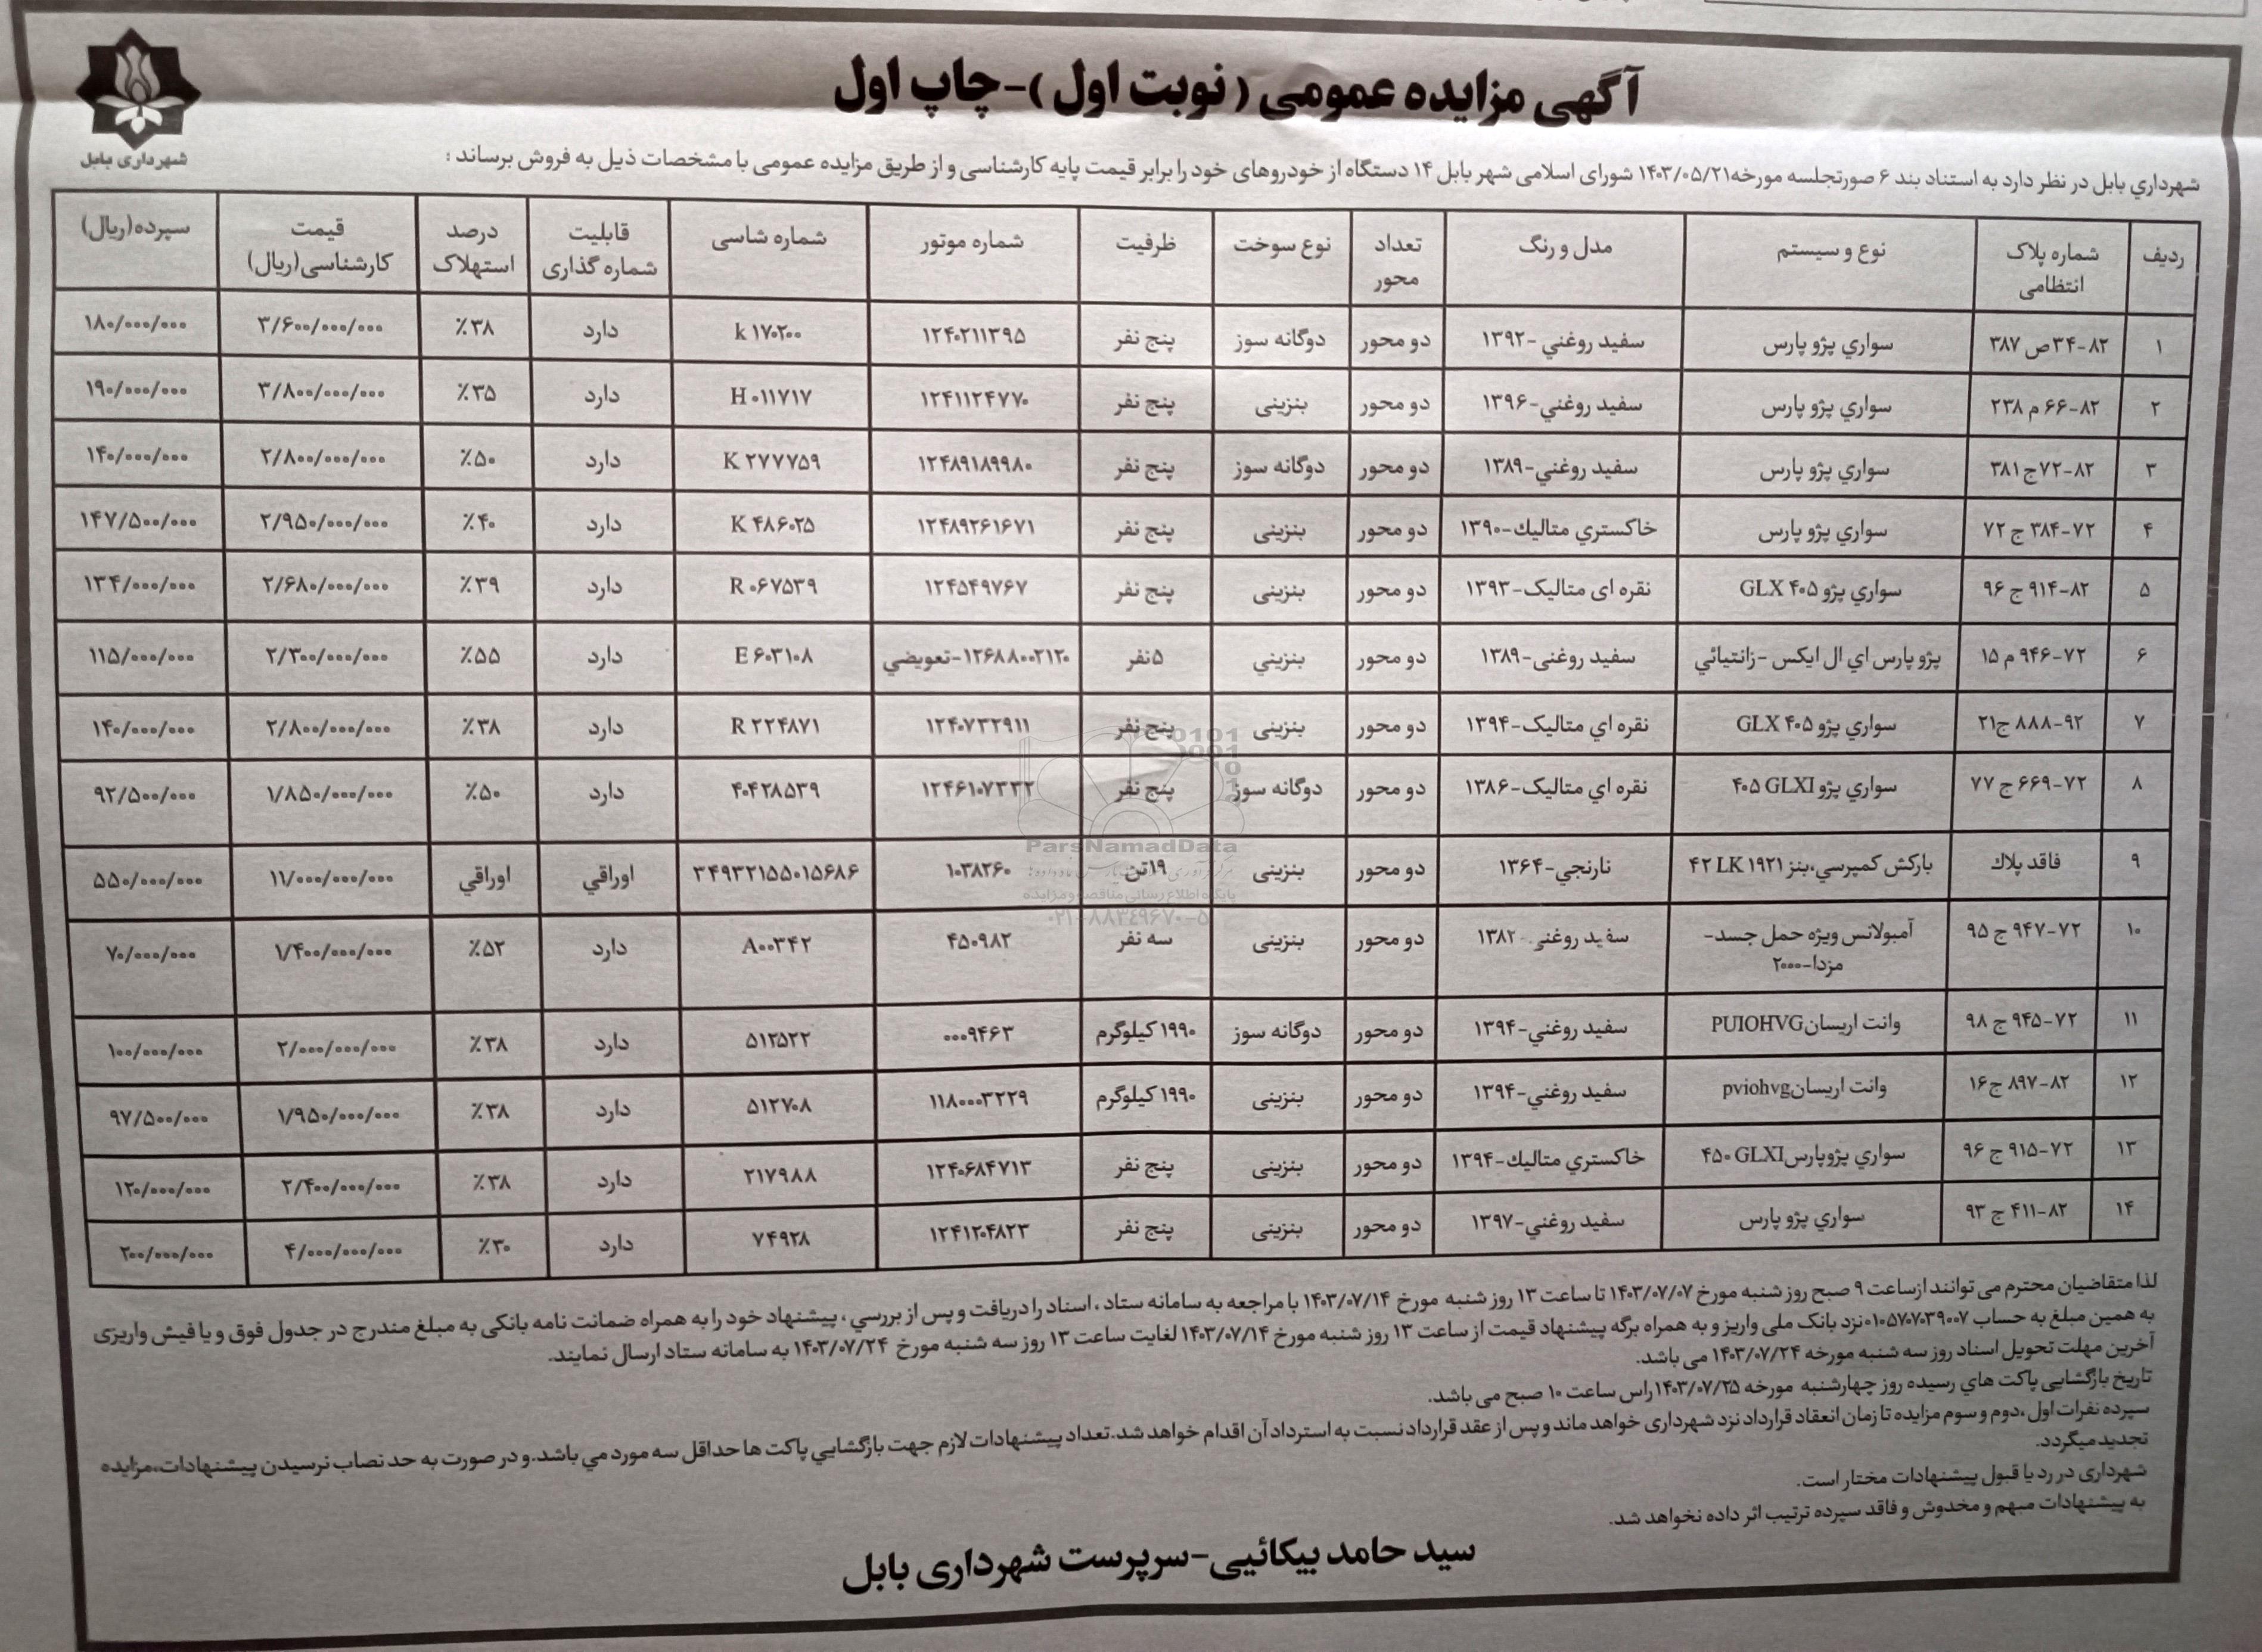 آگهی مزایده عمومی (نوبت اول)-چاپ اول
شهرداری بابل
شهرداري بابل در نظر دارد به استناد بند ۶ صورتجلسه مورخه۱۴۰۳/۰۵/۲۱ شورای اسلامی شهر بابل ۱۴ دستگاه از خودروهای خود را برابر قیمت پایه کارشناسی و از طریق مزایده عمومی با مشخصات ذیل به فروش برساند :
ردیف شماره پلاک انتظامی نوع و سیستم مدل و رنگ تعداد محور نوع سوخت ظرفیت شماره موتور شماره شاسی قابلیت شماره گذاری درصد استهلاک قیمت کارشناسی(ریال) سپرده(ریال)
۱ ۸۲-۳۴ص ۳۸۷ سواري پژو پارس سفيد روغني -۱۳۹۲ دو محور دوگانه سوز پنج نفر ۱۲۴۰۲۱۱۳۹۵ k ۱۷۰۲۰۰ دارد ۳۸٪ ۳/۶۰۰/۰۰۰/۰۰۰ ۱۸۰/۰۰۰/۰۰۰
۲ ۸۲-۶۶ م ۲۳۸ سواري پژو پارس سفيد روغني-۱۳۹۶ دو محور بنزینی پنج نفر ۱۲۴۱۱۲۴۷۷۰ H ۰۱۱۷۱۷ دارد ۳۵٪ ۳/۸۰۰/۰۰۰/۰۰۰ ۱۹۰/۰۰۰/۰۰۰
۳ ۸۲-۷۲ج ۳۸۱ سواري پژو پارس سفيد روغني-۱۳۸۹ دو محور دوگانه سوز پنج نفر ۱۲۴۸۹۱۸۹۹۸۰ K ۲۷۷۷۵۹ دارد ۵۰٪ ۲/۸۰۰/۰۰۰/۰۰۰ ۱۴۰/۰۰۰/۰۰۰
۴ ۷۲-۳۸۴ ج ۷۲ سواري پژو پارس خاكستري متاليك-۱۳۹۰ دو محور بنزینی پنج نفر ۱۲۴۸۹۲۶۱۶۷۱ K ۴۸۶۰۲۵ دارد ۴۰٪ ۲/۹۵۰/۰۰۰/۰۰۰ ۱۴۷/۵۰۰/۰۰۰
۵ ۸۲-۹۱۴ ج ۹۶ سواري پژو ۴۰۵ GLX نقره ای متالیک-۱۳۹۳ دو محور بنزینی پنج نفر ۱۲۴۵۴۹۷۶۷ R ۰۶۷۵۳۹ دارد ۳۹٪ ۲/۶۸۰/۰۰۰/۰۰۰ ۱۳۴/۰۰۰/۰۰۰
۶ ۷۲-۹۴۶ م ۱۵ پژو پارس اي ال ايكس -زانتيائي سفید روغنی-۱۳۸۹ دو محور بنزيني ۵نفر ۱۲۶۸۸۰۰۲۱۲۰-تعويضي E ۶۰۳۱۰۸ دارد ۵۵٪ ۲/۳۰۰/۰۰۰/۰۰۰ ۱۱۵/۰۰۰/۰۰۰
۷ ۹۲-۸۸۸ ج۲۱ سواري پژو ۴۰۵ GLX نقره اي متالیک-۱۳۹۴ دو محور بنزینی پنج نفر ۱۲۴۰۷۳۲۹۱۱ R ۲۲۴۸۷۱ دارد ۳۸٪ ۲/۸۰۰/۰۰۰/۰۰۰ ۱۴۰/۰۰۰/۰۰۰
۸ ۷۲-۶۶۹ ج ۷۷ سواري پژو ۴۰۵ GLXI نقره اي متالیک-۱۳۸۶ دو محور دوگانه سوز پنج نفر ۱۲۴۶۱۰۷۳۳۲ ۴۰۴۲۸۵۳۹ دارد ۵۰٪ ۱/۸۵۰/۰۰۰/۰۰۰ ۹۲/۵۰۰/۰۰۰
۹ فاقد پلاك باركش كمپرسي،بنز ۴۲ LK ۱۹۲۱ نارنجي-۱۳۶۴ دو محور بنزینی ۱۹تن ۱۰۳۸۲۶۰ ۳۴۹۳۲۱۵۵۰۱۵۶۸۶ اوراقي اوراقي ۱۱/۰۰۰/۰۰۰/۰۰۰ ۵۵۰/۰۰۰/۰۰۰
۱۰ ۷۲-۹۴۷ ج ۹۵ آمبولانس ویژه حمل جسد-مزدا-۲۰۰۰ سفید روغنی-۱۳۸۲ دو محور بنزینی سه نفر ۴۵۰۹۸۲ A۰۰۳۴۲ دارد ۵۲٪ ۱/۴۰۰/۰۰۰/۰۰۰ ۷۰/۰۰۰/۰۰۰
۱۱ ۷۲-۹۴۵ ج ۹۸ وانت اریسانPUIOHVG سفيد روغني-۱۳۹۴ دو محور دوگانه سوز ۱۹۹۰ کیلوگرم ۰۰۰۹۴۶۳ ۵۱۲۵۲۲ دارد ۳۸٪ ۲/۰۰۰/۰۰۰/۰۰۰ ۱۰۰/۰۰۰/۰۰۰
۱۲ ۸۲-۸۹۷ ج۱۶ وانت اریسانpviohvg سفيد روغني-۱۳۹۴ دو محور بنزینی ۱۹۹۰ کیلوگرم ۱۱۸۰۰۰۳۲۲۹ ۵۱۲۷۰۸ دارد ۳۸٪ ۱/۹۵۰/۰۰۰/۰۰۰ ۹۷/۵۰۰/۰۰۰
۱۳ ۷۲-۹۱۵ ج ۹۶ سواري پژوپارس۴۵۰ GLXI خاكستري متاليك-۱۳۹۴ دو محور بنزینی پنج نفر ۱۲۴۰۶۸۴۷۱۳ ۲۱۷۹۸۸ دارد ۳۸٪ ۲/۴۰۰/۰۰۰/۰۰۰ ۱۲۰/۰۰۰/۰۰۰
۱۴ ۸۲-۴۱۱ ج ۹۳ سواري پژو پارس سفيد روغني-۱۳۹۷ دو محور بنزینی پنج نفر ۱۲۴۱۲۰۴۸۲۳ ۷۴۹۲۸ دارد ۳۰٪ ۴/۰۰۰/۰۰۰/۰۰۰ ۲۰۰/۰۰۰/۰۰۰
ParsNamadData
پایگاه اطلاع رسانی مناقصه و مزایده
۰۲۱-۸۸۳۴۹۶۷۰-۵
لذا متقاضیان محترم می توانند ازساعت ۹ صبح روز شنبه مورخ ۱۴۰۳/۰۷/۰۷ تا ساعت ۱۳ روز شنبه مورخ ۱۴۰۳/۰۷/۱۴ با مراجعه به سامانه ستاد ، اسناد را دریافت و پس از بررسي ، پیشنهاد خود را به همراه ضمانت نامه بانکی به مبلغ مندرج در جدول فوق و یا فیش واریزی
به همین مبلغ به حساب ۰۱۰۵۷۰۷۰۳۹۰۰۷نزد بانک ملی واریز و به همراه برگه پیشنهاد قیمت از ساعت ۱۳ روز شنبه مورخ ۱۴۰۳/۰۷/۱۴ لغایت ساعت ۱۳ روز سه شنبه مورخ ۱۴۰۳/۰۷/۲۴ به سامانه ستاد ارسال نمایند.
آخرین مهلت تحویل اسناد روز سه شنبه مورخه ۱۴۰۳/۰۷/۲۴ می باشد.
تاریخ بازگشایی پاکت هاي رسیده روز چهارشنبه مورخه ۱۴۰۳/۰۷/۲۵راس ساعت ۱۰ صبح می باشد.
سپرده نفرات اول ،دوم و سوم مزایده تا زمان انعقاد قرارداد نزد شهرداری خواهد ماند و پس از عقد قرارداد نسبت به استرداد آن اقدام خواهد شد.تعداد پیشنهادات لازم جهت بازگشايي پاكت ها حداقل سه مورد مي باشد.و در صورت به حد نصاب نرسیدن پیشنهادات،مزایده
تجدید میگردد.
شهرداری در رد یا قبول پیشنهادات مختار است.
به پیشنهادات مبهم و مخدوش و فاقد سپرده ترتیب اثر داده نخواهد شد.
سید حامد بیکائیی-سرپرست شهرداری بابل